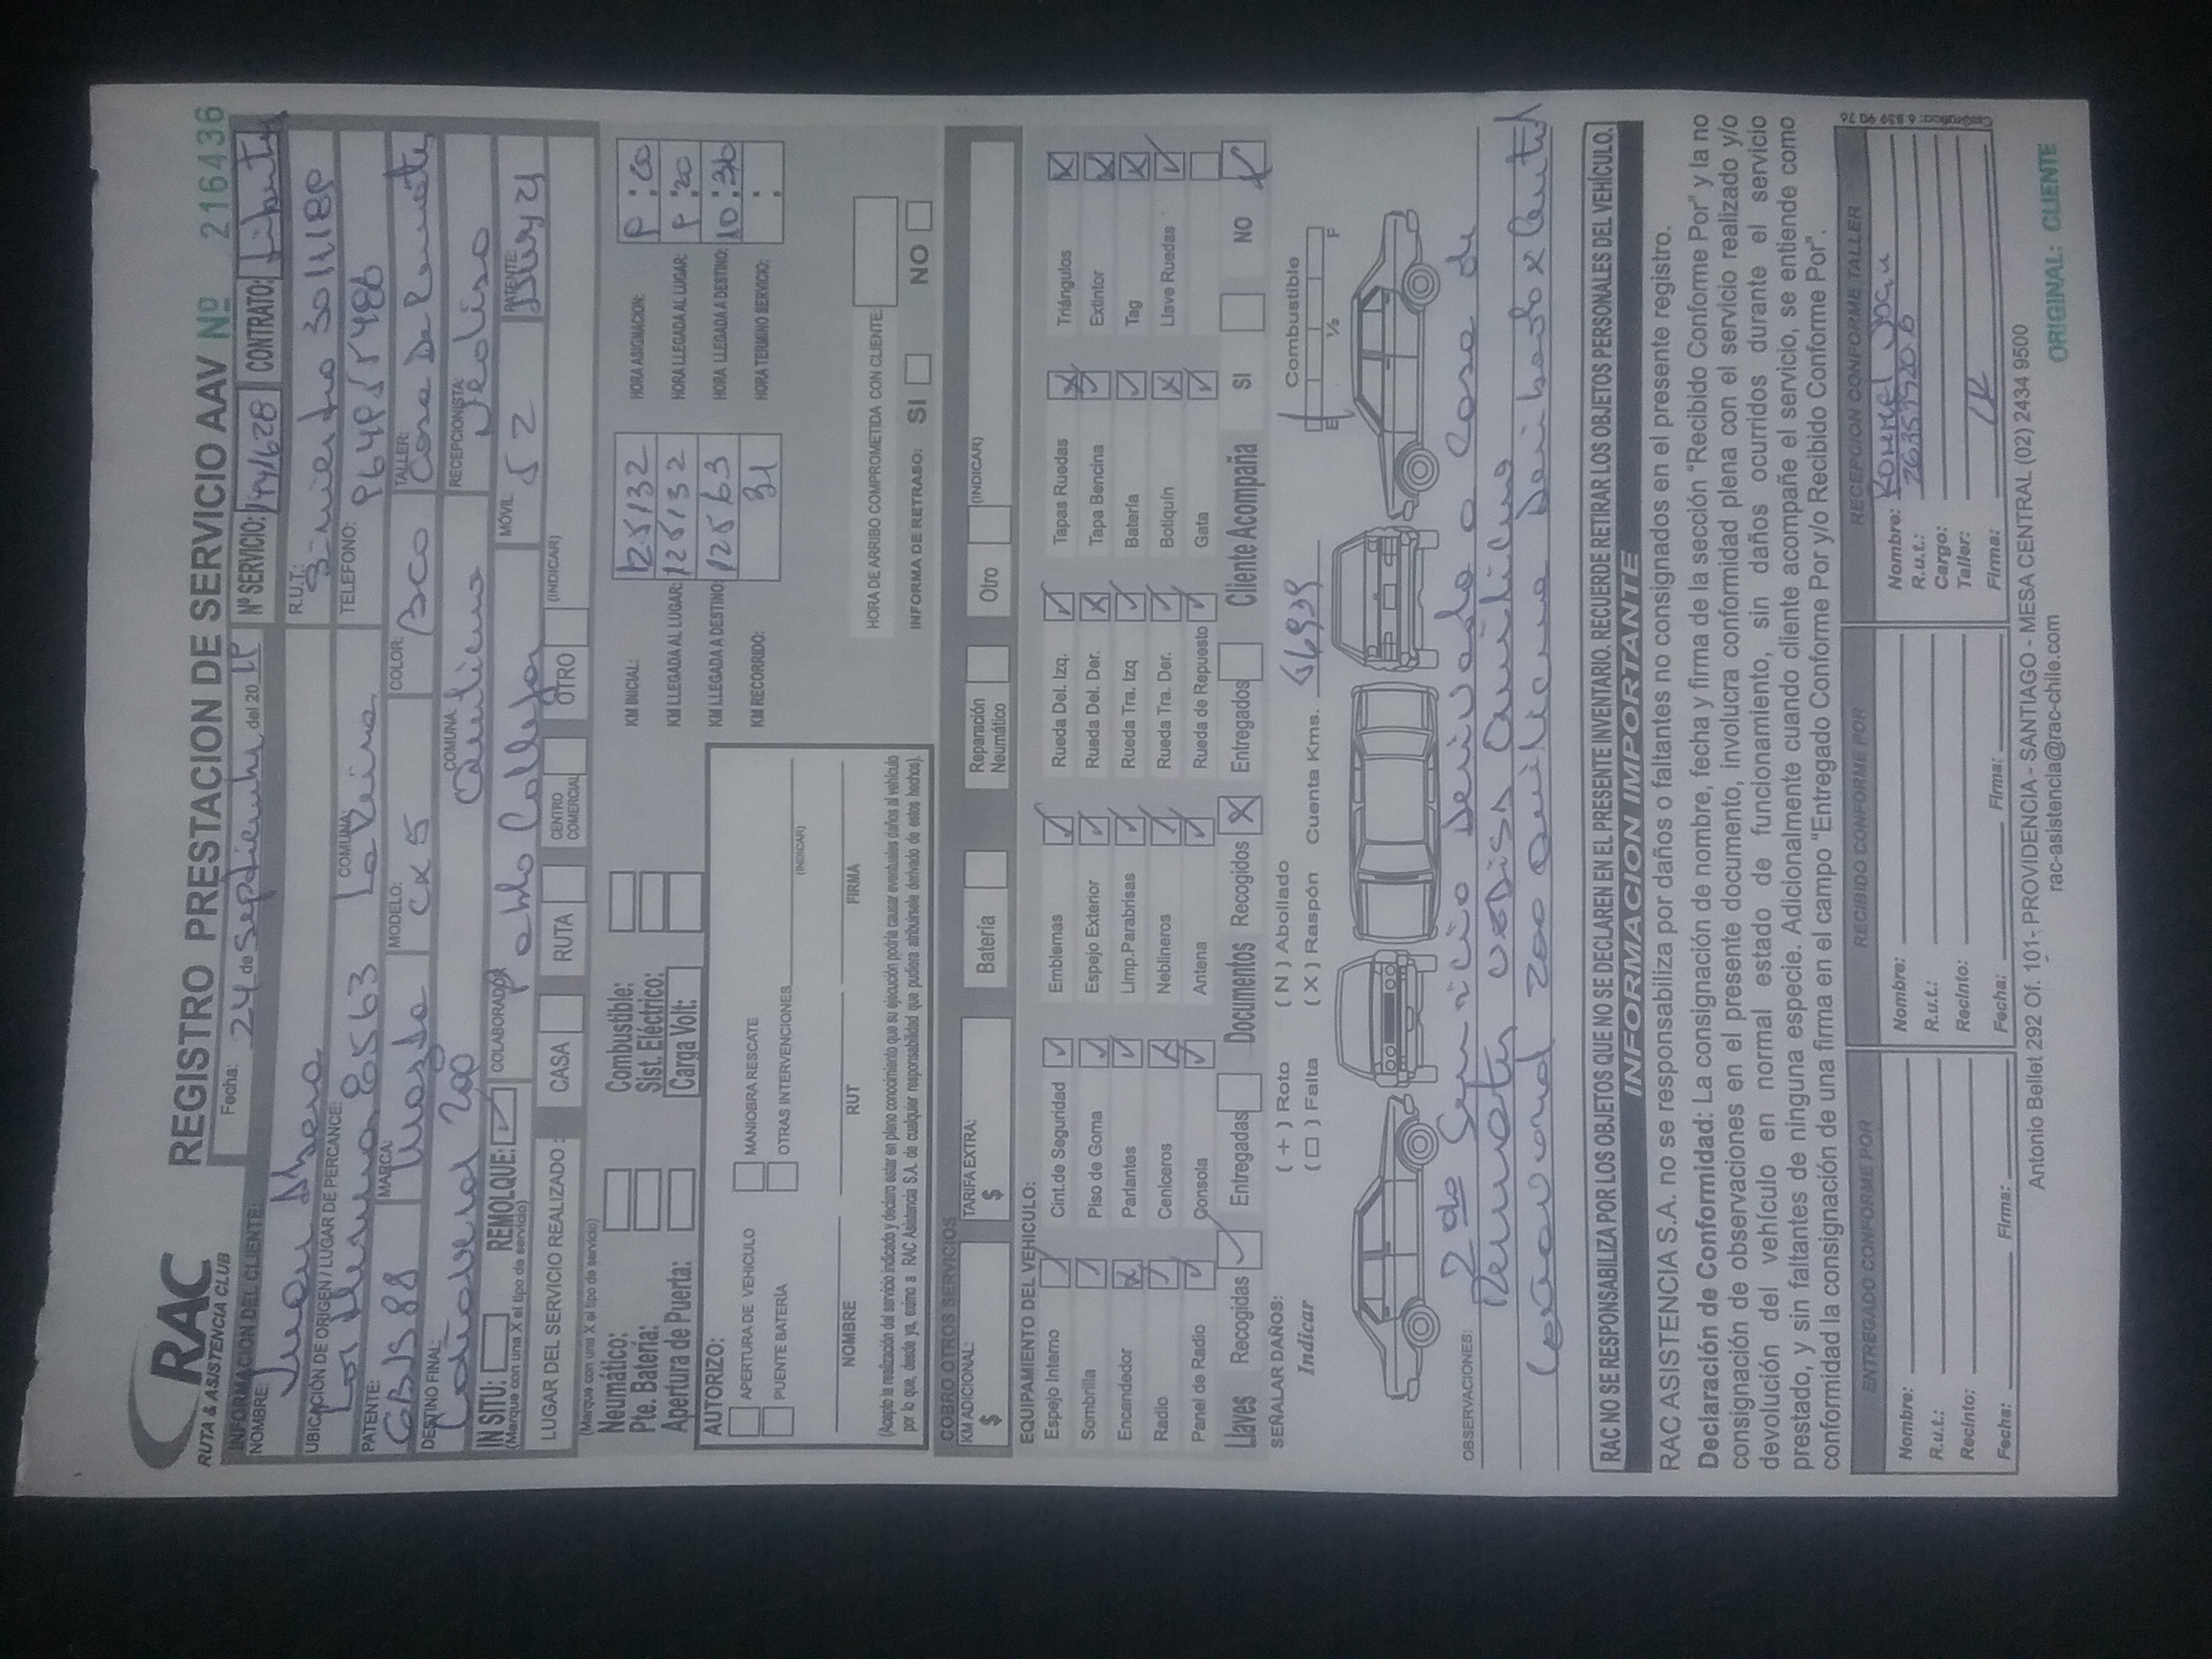 RAC
RUTA & ASISTENCIA CLUB
REGISTRO PRESTACION DE SERVICIO AAV Nº 216436
Fecha: 24 de Septiembre del 20
Nº SERVICIO: CONTRATO:
INFORMACION DEL CLIENTE:
NOMBRE:
R.U.T.: Siniestro
UBICACIÓN DE ORIGEN / LUGAR DE PERCANCE: 8563
COMUNA: La Reina
TELEFONO:
PATENTE: MARCA: Mazda MODELO: CX 5 COLOR: BCO TALLER: Casa De Remate
DESTINO FINAL: 200
COMUNA: Quilicura
RECEPCIONISTA:
IN SITU: REMOLQUE:
(Marque con una X el tipo de servicio)
COLABORADOR: Pablo Collejas
MÓVIL: 52
PATENTE:
LUGAR DEL SERVICIO REALIZADO: CASA RUTA CENTRO COMERCIAL OTRO (INDICAR)
(Marque con una X el tipo de servicio)
Neumático: Combustible:
Pte. Bateria: Sist. Eléctrico:
Apertura de Puerta: Carga Volt:
KM INICIAL: 125132 HORA ASIGNACION:
KM LLEGADA AL LUGAR: 125132 HORA LLEGADA AL LUGAR:
KM LLEGADA A DESTINO: 125163 HORA LLEGADA A DESTINO: 10:30
KM RECORRIDO: 31 HORA TERMINO SERVICIO:
AUTORIZO:
APERTURA DE VEHICULO MANIOBRA RESCATE
PUENTE BATERÍA OTRAS INTERVENCIONES
(INDICAR)
NOMBRE RUT FIRMA
(Acepto la realización del servicio indicado y declaro estar en pleno conocimiento que su ejecución podría causar eventuales daños al vehículo
por lo que, desde ya, eximo a RAC Asistencia S.A. de cualquier responsabilidad que pudiera atribuírsele derivado de estos hechos).
HORA DE ARRIBO COMPROMETIDA CON CLIENTE:
INFORMA DE RETRASO: SI NO
COBRO OTROS SERVICIOS
KM ADICIONAL: $ TARIFA EXTRA: $ Batería Reparación Neumático Otro (INDICAR)
EQUIPAMIENTO DEL VEHICULO:
Espejo Interno Cint.de Seguridad Emblemas Rueda Del. Izq. Tapas Ruedas Triángulos
Sombrilla Piso de Goma Espejo Exterior Rueda Del. Der. Tapa Bencina Extintor
Encendedor Parlantes Limp.Parabrisas Rueda Tra. Izq Batería Tag
Radio Ceniceros Neblineros Rueda Tra. Der. Botiquín Llave Ruedas
Panel de Radio Consola Antena Rueda de Repuesto Gata
Llaves Recogidas Entregadas Documentos Recogidos Entregados Cliente Acompaña SI NO
SEÑALAR DAÑOS:
Indicar
( + ) Roto ( N ) Abollado
( □ ) Falta ( X ) Raspón Cuenta Kms. 56939
Combustible
E ½ F
OBSERVACIONES: 2 do Servicio Derivado a Casa de
Remates Quilicura
200 Quilicura
RAC NO SE RESPONSABILIZA POR LOS OBJETOS QUE NO SE DECLAREN EN EL PRESENTE INVENTARIO. RECUERDE RETIRAR LOS OBJETOS PERSONALES DEL VEHÍCULO.
INFORMACION IMPORTANTE
RAC ASISTENCIA S.A. no se responsabiliza por daños o faltantes no consignados en el presente registro.
Declaración de Conformidad: La consignación de nombre, fecha y firma de la sección "Recibido Conforme Por" y la no
consignación de observaciones en el presente documento, involucra conformidad plena con el servicio realizado y/o
devolución del vehículo en normal estado de funcionamiento, sin daños ocurridos durante el servicio
prestado, y sin faltantes de ninguna especie. Adicionalmente cuando cliente acompañe el servicio, se entiende como
conformidad la consignación de una firma en el campo "Entregado Conforme Por y/o Recibido Conforme Por".
ENTREGADO CONFORME POR
Nombre:
R.u.t.:
Recinto:
Fecha: Firma:
RECIBIDO CONFORME POR
Nombre:
R.u.t.:
Recinto:
Fecha: Firma:
RECEPCION CONFORME TALLER
Nombre:
R.u.t.:
Cargo:
Taller:
Firma:
Antonio Bellet 292 Of. 101- PROVIDENCIA - SANTIAGO - MESA CENTRAL (02) 2434 9500
rac-asistencia@rac-chile.com
ORIGINAL: CLIENTE